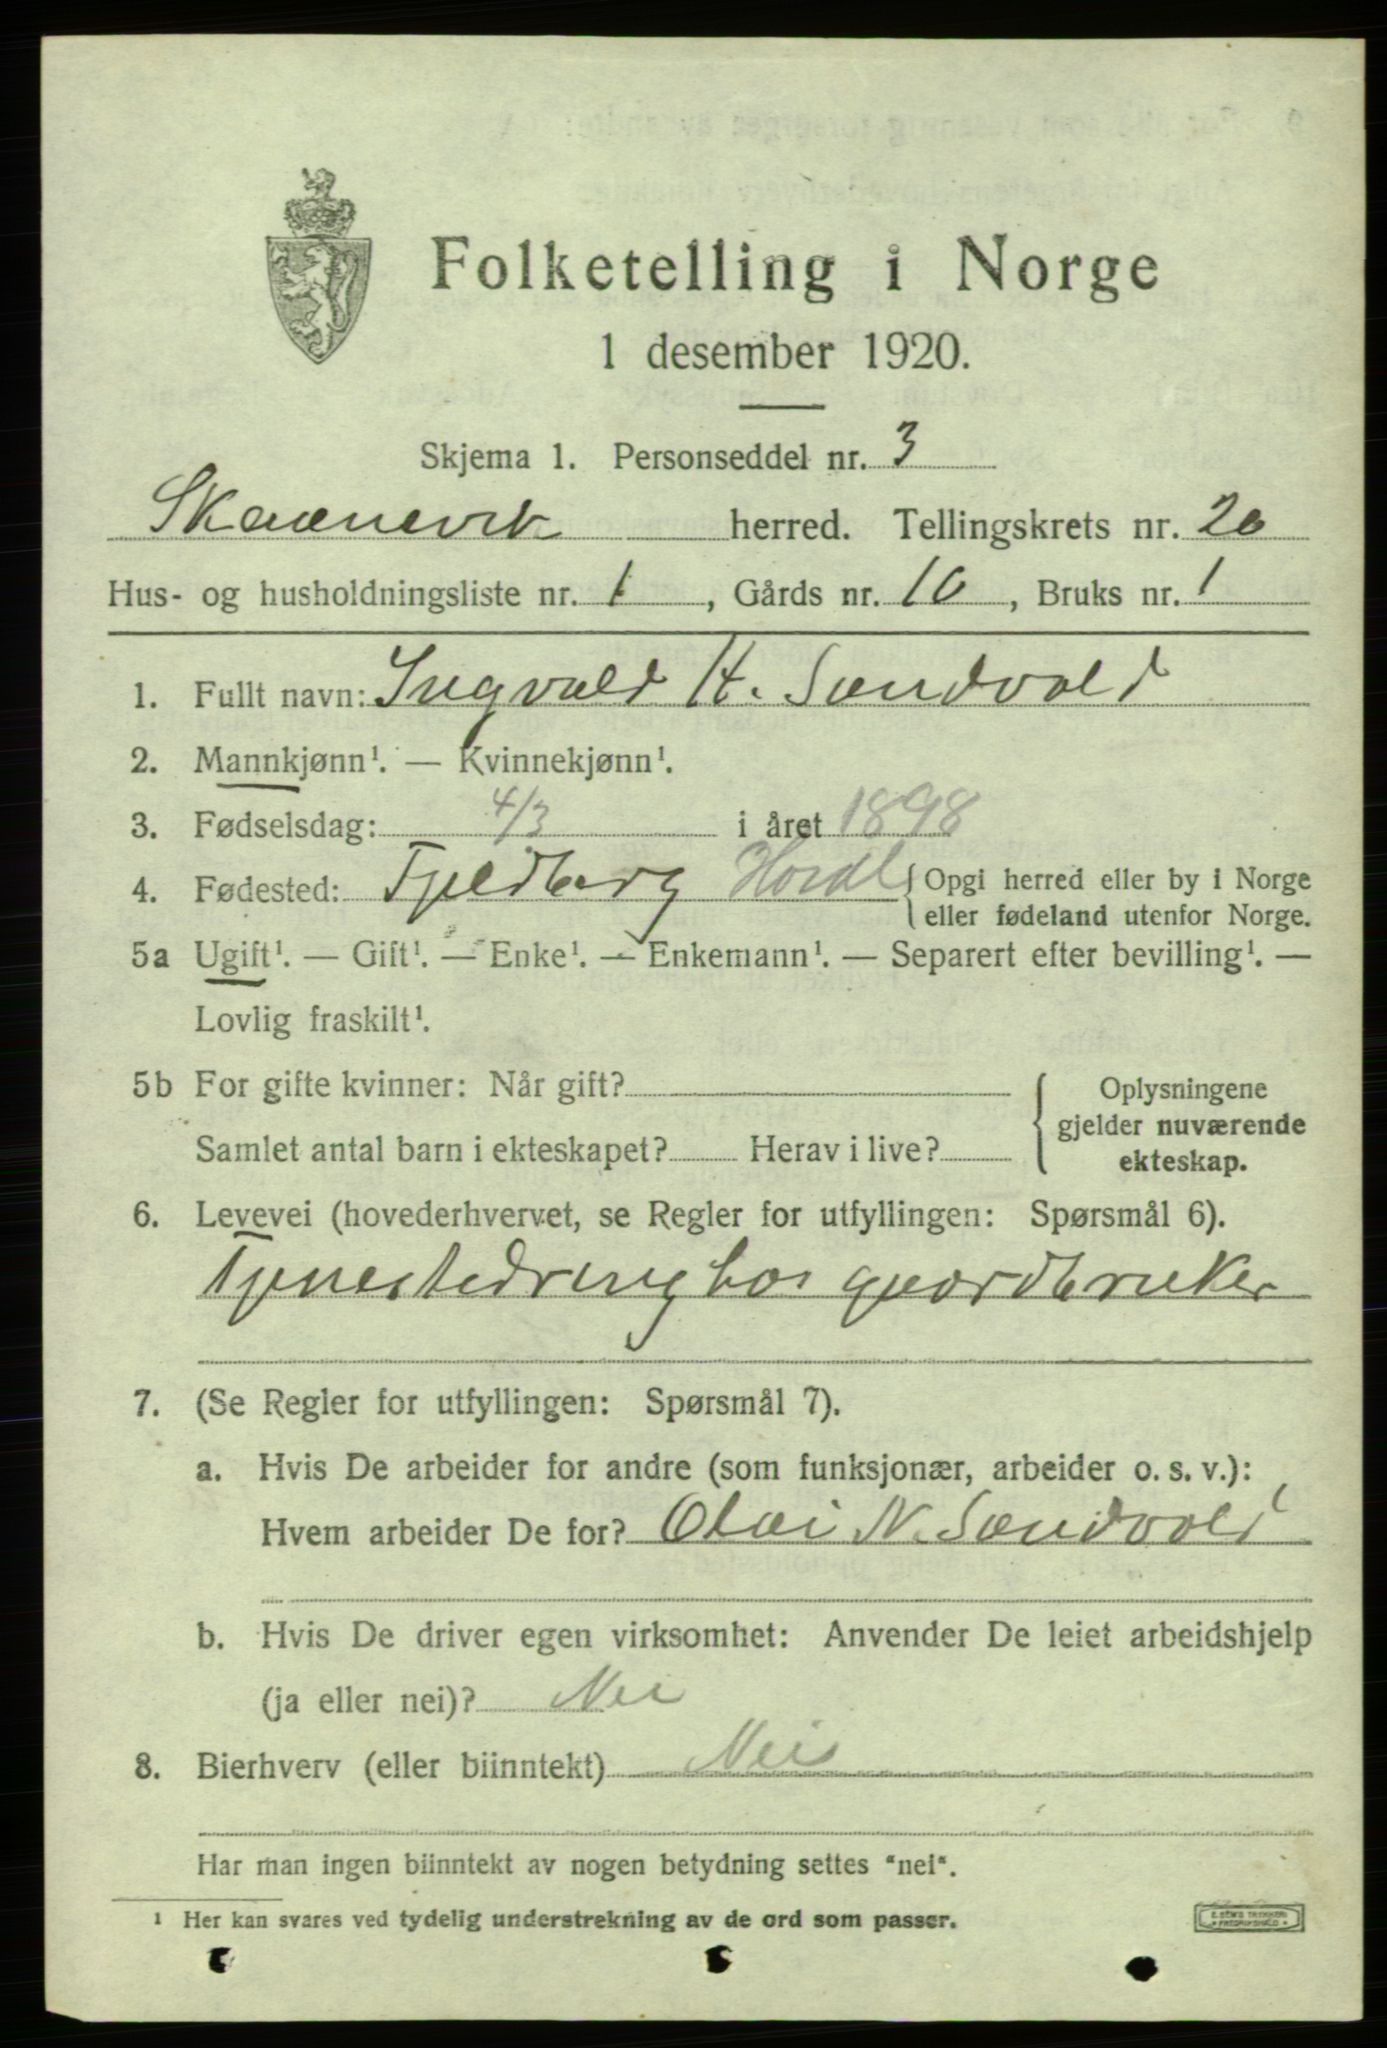 Folketelling i Norge
1 desember 1920.
Skjema 1. Personseddel nr. 3
Skaanevik herred. Tellingskrets nr. 20
Hus- og husholdningsliste nr. 1, Gårds nr. 10, Bruks nr. 1
1. Fullt navn: Ingvald H. Sandvold
2. Mannkjønn¹. — Kvinnekjønn¹.
3. Fødselsdag: 4/3 i året 1898
4. Fødested: Fjeldberg Hordl {Opgi herred eller by i Norge
eller fødeland utenfor Norge.
5a Ugift¹. — Gift¹. — Enke¹. — Enkemann¹. — Separert efter bevilling¹. —
Lovlig fraskilt¹.
5b For gifte kvinner: Når gift? { Oplysningene
gjelder nuværende
Samlet antal barn i ekteskapet? Herav i live?
ekteskap.
6. Levevei (hovederhvervet, se Regler for utfyllingen: Spørsmål 6).
Tjenestedreng hos gaardbruker
7. (Se Regler for utfyllingen: Spørsmål 7).
a. Hvis De arbeider for andre (som funksjonær, arbeider o. s. v.):
Hvem arbeider De for? Olai N. Sandvold
b. Hvis De driver egen virksomhet: Anvender De leiet arbeidshjelp
(ja eller nei)? Nei
8. Bierhverv (eller biinntekt) Nei
Har man ingen biinntekt av nogen betydning settes "nei".
¹ Her kan svares ved tydelig understrekning av de ord som passer.